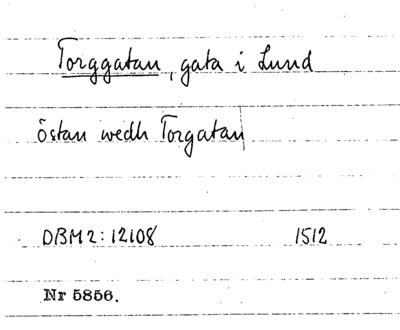 Torggatan, gata i Lund
östan wedh Torgatan
DBM2:12108 1512
Nr 5856.